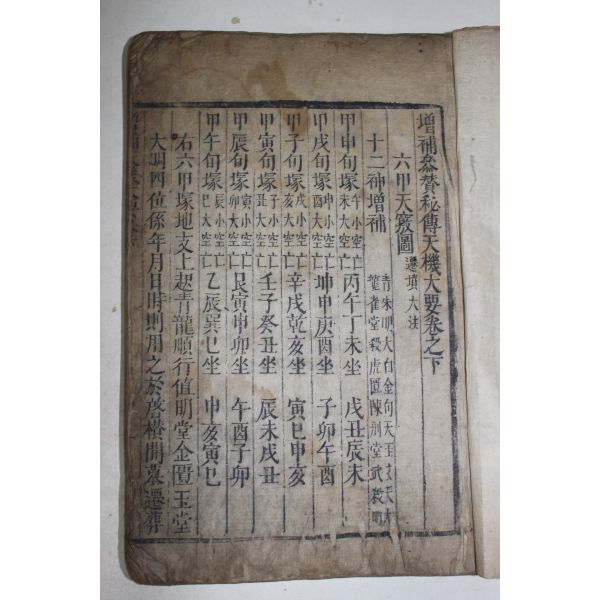 增補參贊秘傳天機大要卷之下
六甲天竅圖 遷墳大法
十二神增補
甲申旬塚 午小空亡 未大空亡 丙午丁未坐 戌丑辰未
甲戌旬塚 申小空亡 酉大空亡 坤申庚酉坐 子卯午酉
甲子旬塚 戌小空亡 亥大空亡 辛戌乾亥坐 寅巳申亥
甲寅旬塚 子小空亡 丑大空亡 壬子癸丑坐 辰未戌丑
甲辰旬塚 寅小空亡 卯大空亡 艮寅甲卯坐 午酉子卯
甲午旬塚 辰小空亡 巳大空亡 乙辰巽巳坐 申亥寅巳
右六甲塚地支上起青龍順行值明堂金匱玉堂
大明四位係年月日時則用之於啓欑開墓遷葬